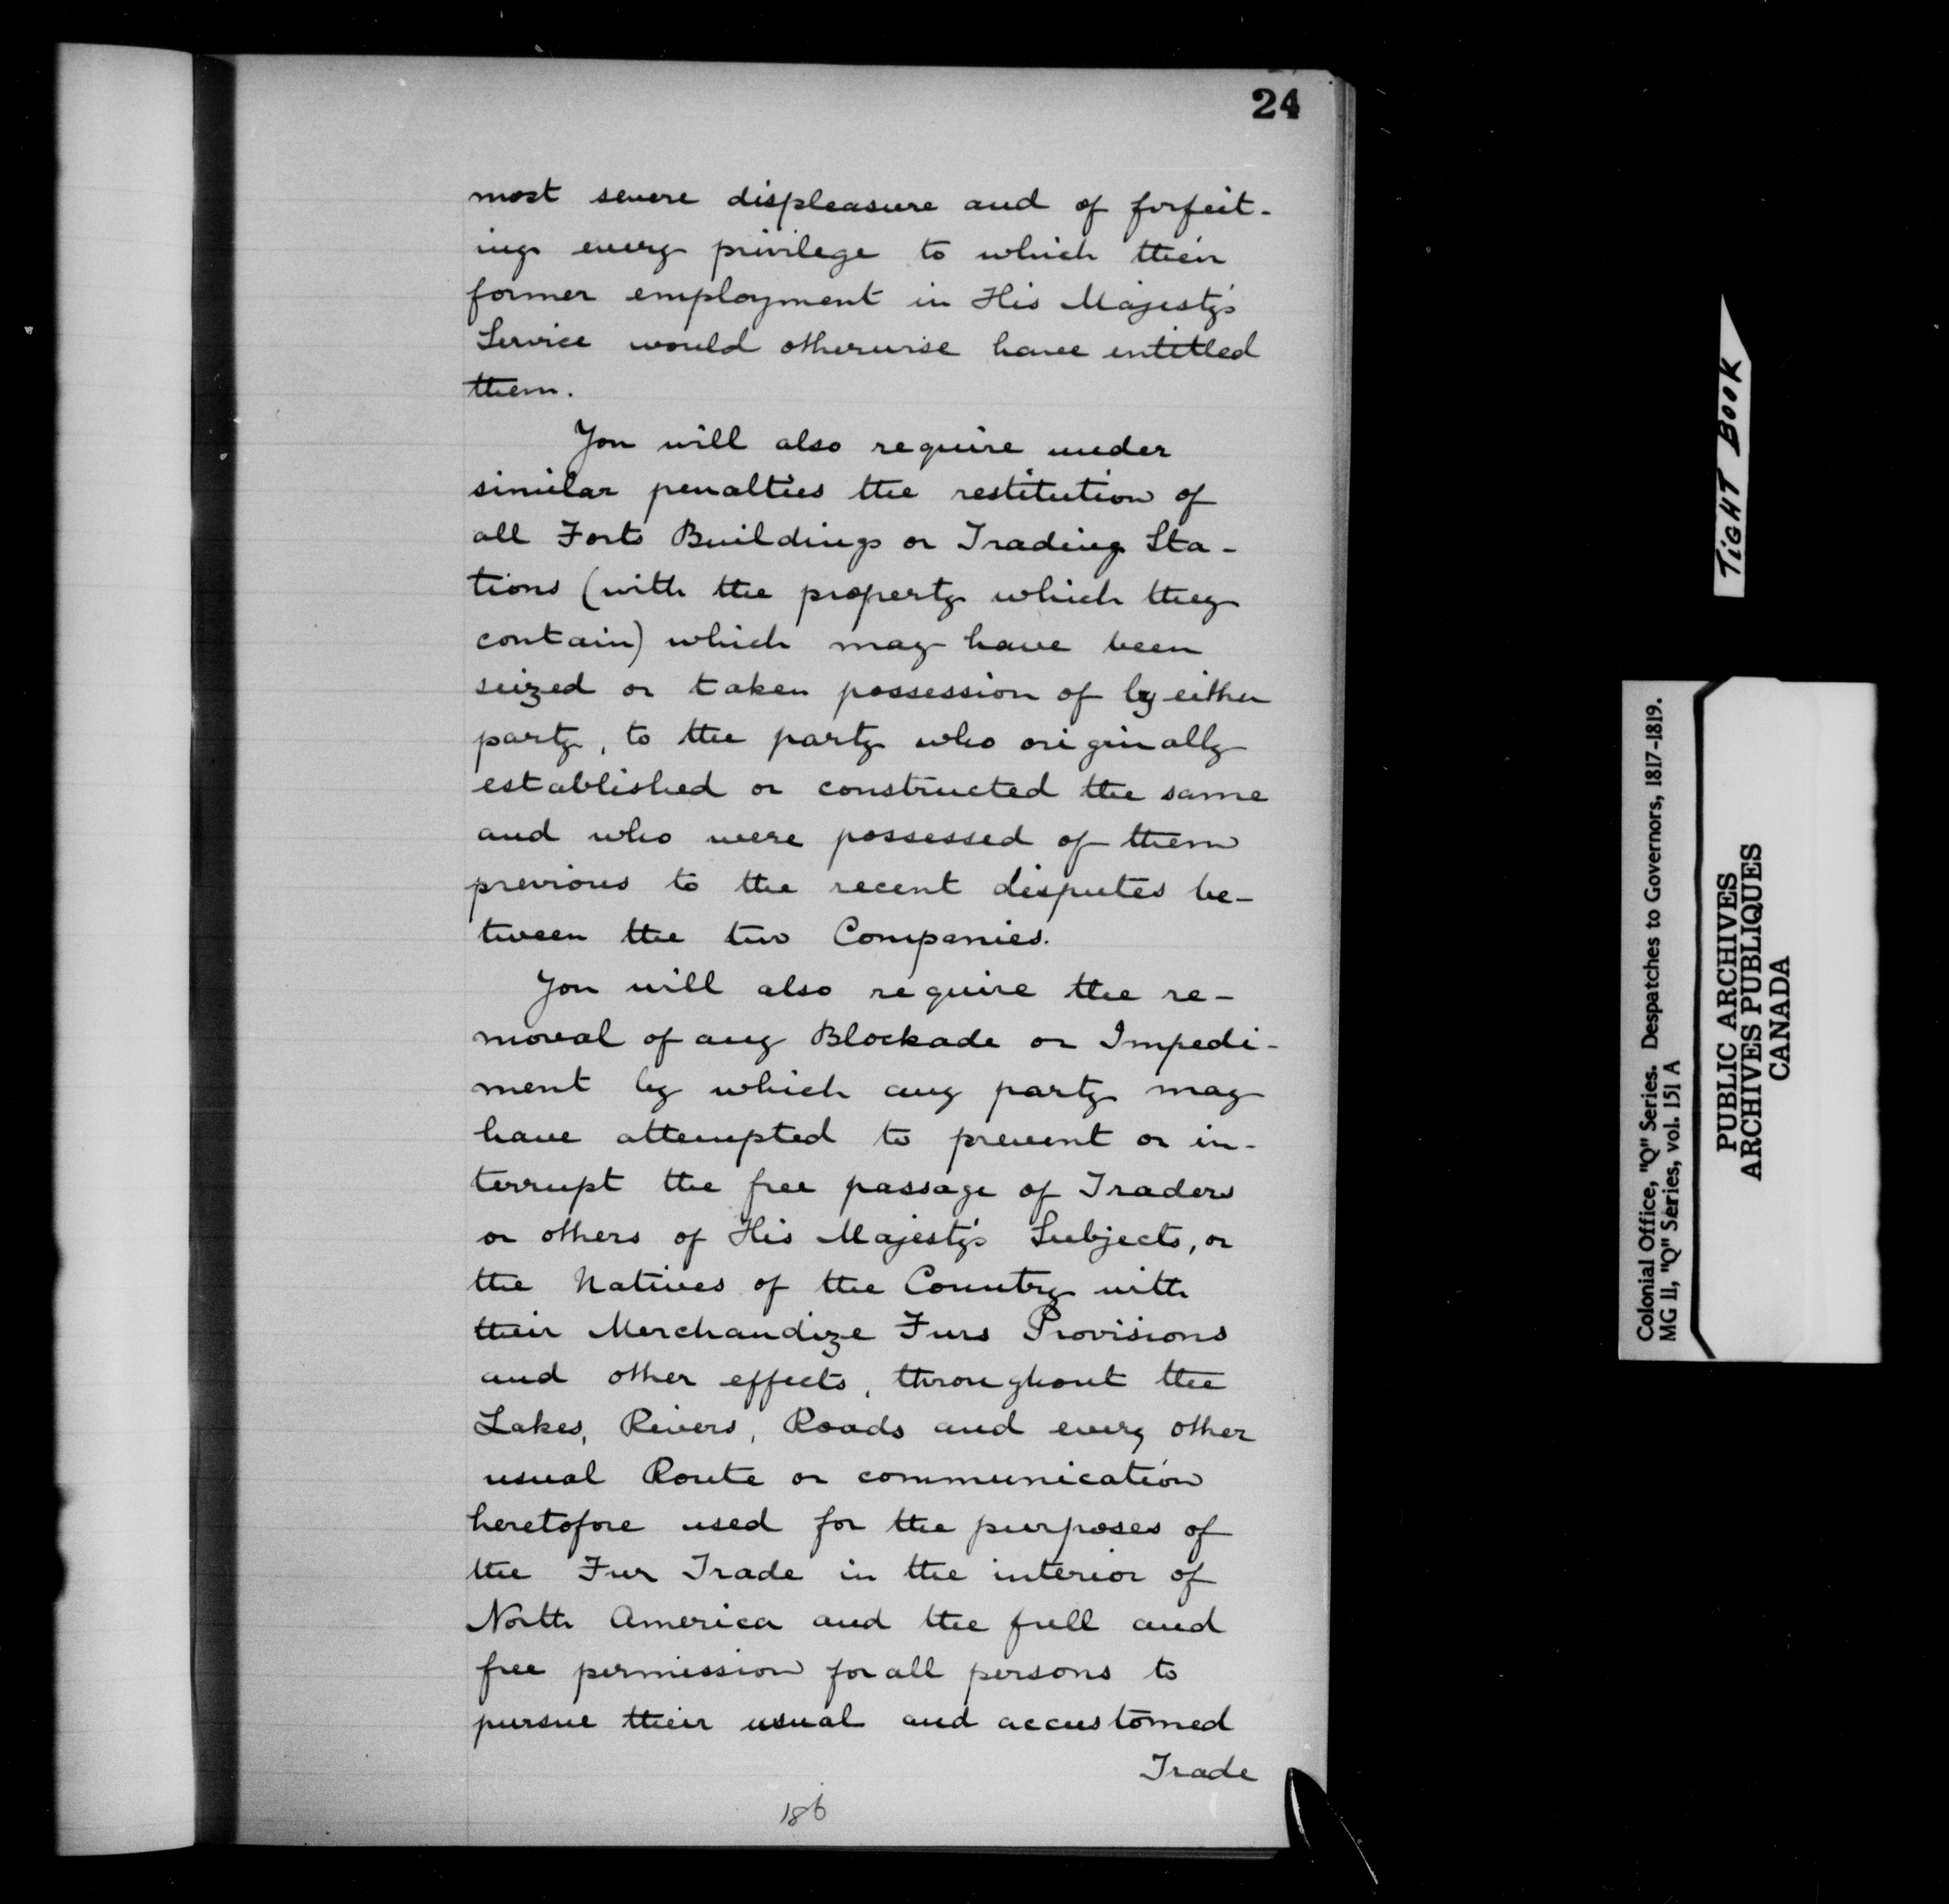 24
most severe displeasure and of forfeit-
ing every privilege to which their
former employment in His Majesty's
Service would otherwise have entitled
them.
You will also require under
similar penalties the restitution of
all Forts Buildings or Trading Sta-
tions (with the property which they
contain) which may have been
seized or taken possession of by either
party, to the party who originally
established or constructed the same
and who were possessed of them
previous to the recent disputes be-
tween the two Companies.
You will also require the re-
moval of any Blockade or Impedi-
ment by which any party may
have attempted to prevent or in-
terrupt the free passage of Traders
or others of His Majesty's Subjects, or
the Natives of the Country with
their Merchandize Furs Provisions
and other effects, throughout the
Lakes, Rivers, Roads and every other
usual Route or communication
heretofore used for the purposes of
the Fur Trade in the interior of
North America and the full and
free permission for all persons to
pursue their usual and accustomed
Trade
186
TIGHT BOOK
Colonial Office, "Q" Series. Despatches to Governors, 1817-1819.
MG 11, "Q" Series, vol. 151 A
PUBLIC ARCHIVES
ARCHIVES PUBLIQUES
CANADA